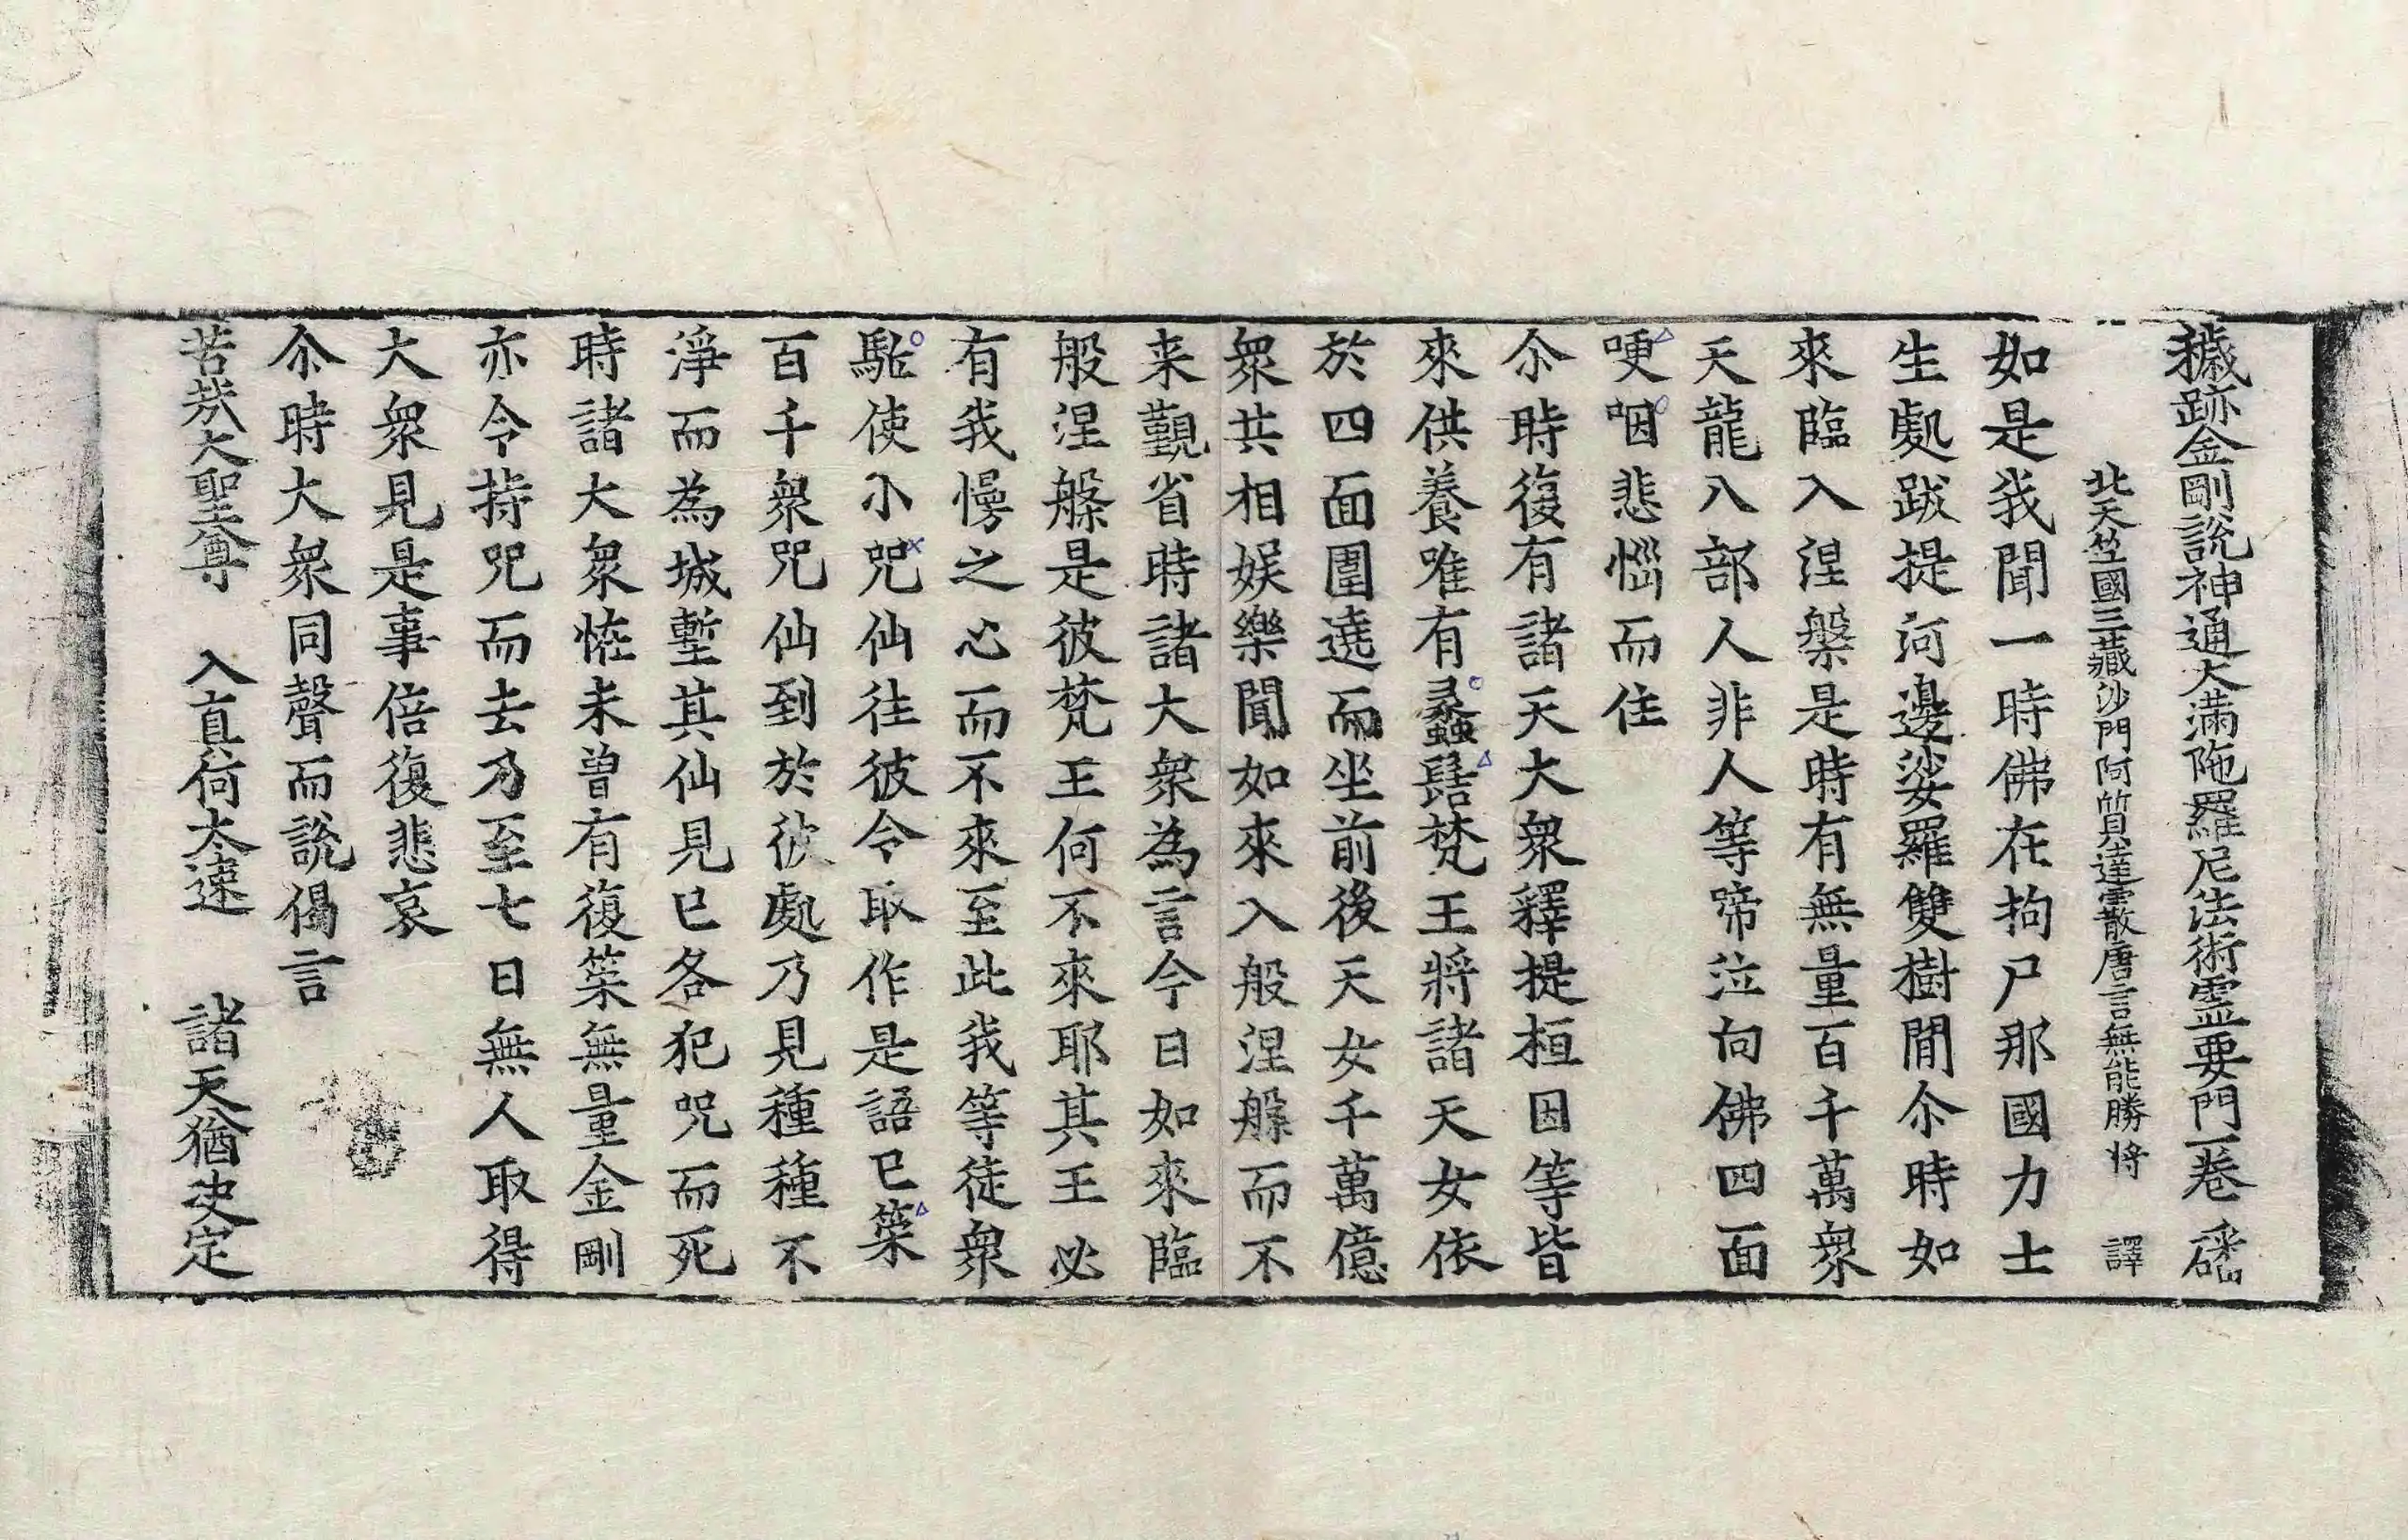 穢跡金剛說神通大滿陁羅尼法術靈要門一卷 磻
北天竺國三藏沙門阿質達霰唐言無能勝將 譯
如是我聞一時佛在拘尸那國力士
生處跋提河邊娑羅雙樹閒尒時如
來臨入涅槃是時有無量百千萬衆
天龍八部人非人等啼泣向佛四面
哽咽悲惱而住
尒時復有諸天大衆釋提桓因等皆
來供養唯有蠡髻梵王將諸天女依
於四面圍遶而坐前後天女千萬億
衆共相娛樂聞如來入般涅槃而不
来觀省時諸大衆為言今日如來臨
般涅槃是彼梵王何不來耶其王必
有我慢之心而不來至此我等徒衆
駈使小咒仙往彼令取作是語已䇿
百千衆咒仙到於彼處乃見種種不
淨而為城塹其仙見已各犯咒而死
時諸大衆恠未曾有復䇿無量金剛
亦令持咒而去乃至七日無人取得
大衆見是事倍復悲哀
尒時大衆同聲而說偈言
苦哉大聖尊 入直何太速 諸天猶決定